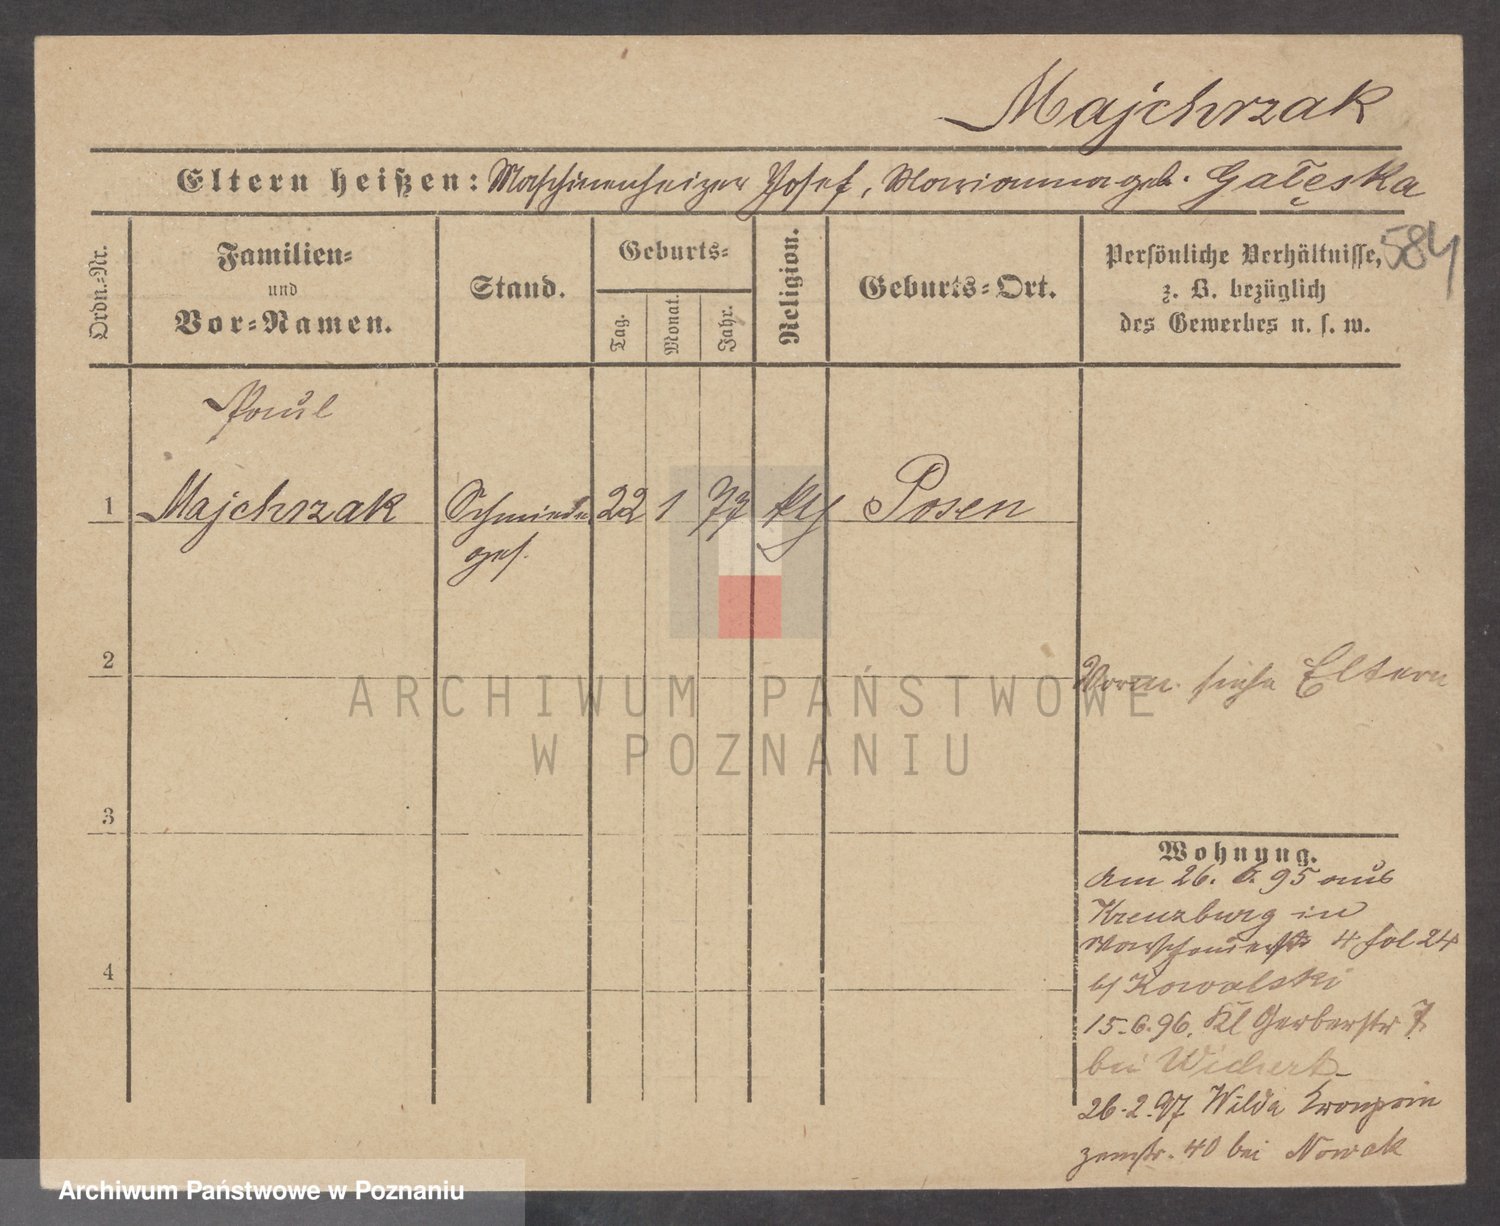 Majchrzak
Eltern heißen: Maschinenheizer Josef, Marianna geb. Gałęska
584
Ordn.-Nr.
Familien-
und
Vor-Namen.
Stand.
Geburts-
Tag.
Monat.
Jahr.
Religion.
Geburts-Ort.
Persönliche Verhältnisse,
z. B. bezüglich
des Gewerbes u. s. w.
Paul
1 Majchrzak Schmiede 22 1 77 kth Posen
ges.
2
Vorm. siehe Eltern
ARCHIWUM PAŃSTWOWE
W POZNANIU
3
Wohnung.
Am 26. 6. 95 aus
Kreuzburg in
Warschauerstr 4 fol 24
b/ Kowalski
4
15.6.96. Kl Gerberstr 7
bei Wichert
26.2.97 Wilda Kronprin
zenstr. 40 bei Nowak
Archiwum Państwowe w Poznaniu